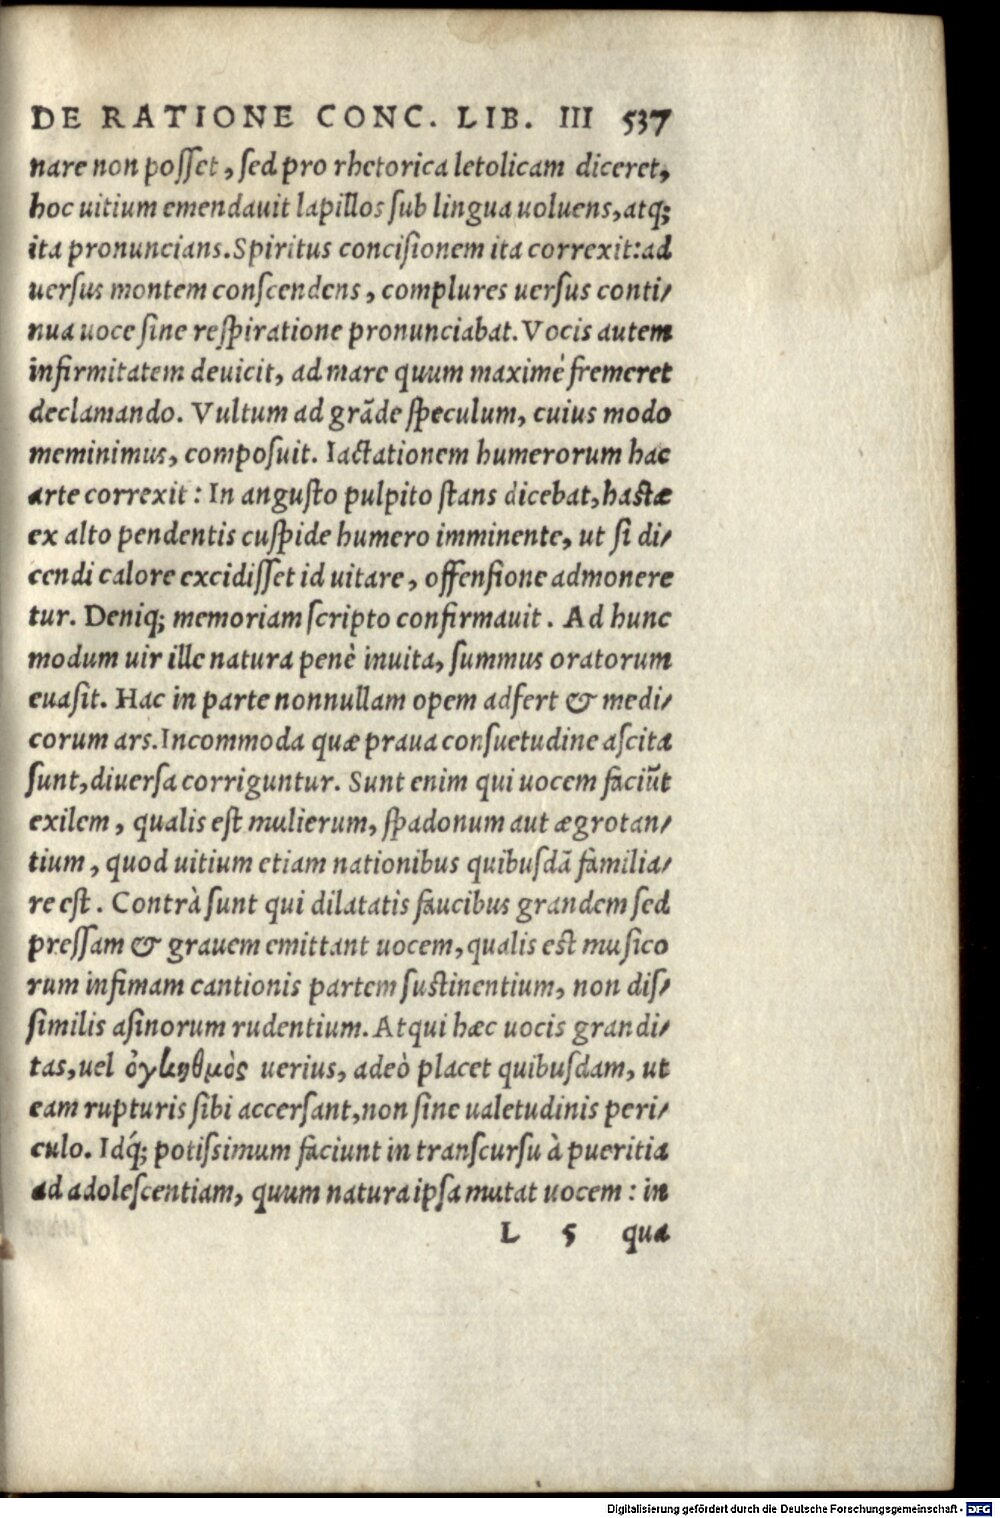 DE RATIONE CONC. LIB. III 537
nare non posset, sed pro rhetorica letolicam diceret,
hoc uitium emendauit lapillos sub lingua uoluens, atq;
ita pronuncians. Spiritus concisionem ita correxit: ad
uersus montem conscendens, complures uersus conti/
nua uoce sine respiratione pronunciabat. Vocis autem
infirmitatem deuicit, ad mare quum maximè fremeret
declamando. Vultum ad grãde speculum, cuius modo
meminimus, composuit. Iactationem humerorum hac
arte correxit: In angusto pulpito stans dicebat, hastæ
ex alto pendentis cuspide humero imminente, ut si di/
cendi calore excidisset id uitare, offensione admonere
tur. Deniq; memoriam scripto confirmauit. Ad hunc
modum uir ille natura penè inuita, summus oratorum
euasit. Hac in parte nonnullam opem adfert & medi/
corum ars. Incommoda quæ praua consuetudine ascita
sunt, diuersa corriguntur. Sunt enim qui uocem faciũt
exilem, qualis est mulierum, spadonum aut ægrotan/
tium, quod uitium etiam nationibus quibusdã familia/
re est. Contrà sunt qui dilatatis faucibus grandem sed
pressam & grauem emittant uocem, qualis est musico
rum infimam cantionis partem sustinentium, non dis/
similis asinorum rudentium. Atqui hæc uocis grandi/
tas, uel ὀγκηθμὸς uerius, adeò placet quibusdam, ut
eam rupturis sibi accersant, non sine ualetudinis peri/
culo. Idq́; potissimum faciunt in transcursu à pueritia
ad adolescentiam, quum natura ipsa mutat uocem: in
L 5 qua
Digitalisierung gefördert durch die Deutsche Forschungsgemeinschaft - DFG